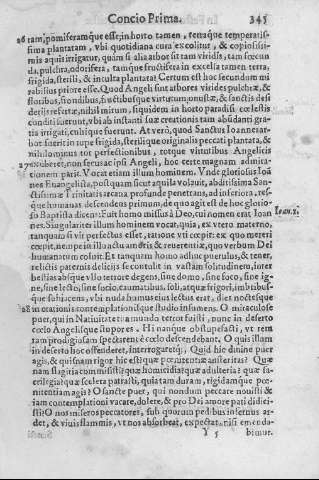 Concio Prima. 345
26 ram, pomiferamque esse, in horto tamen, terraque temperatis-
sima plantatam, vbi quotidiana cura excolitur, & copiosissi-
mis aquis irrigatur, quàm si alia arbor sit tam viridis, tam fœcun
da, pulchra, odorifera, tamque fructifera in excelsa tamen terra,
frigida, sterili, & inculta plantata? Certum est hoc secundum mi
rabilius priore esse. Quod Angeli sint arbores virides pulchræ, &
floribus, frondibus, fructibusque virtutum onustæ, & sanctis desi
derijs refertæ, nihil mirum, siquidem in horto paradisi cœlestis
conditi fuerunt, vbi ab instanti suæ creationis tam abũdanti gra-
tia irrigati, cultique fuerunt. At verò, quod Sanctus Ioannes ar-
bor fuerit in rupe frigida, sterilique originalis peccati plantata, &
nihilominus tot perfectionibus, totque virtutibus Angelicis
27 exuberet, non secus ac ipsi Angeli, hoc certe magnam admira-
tionem parit. Vocat etiam illum hominem. Vnde gloriosus Ioã
nes Euangelista, postquam sicut aquila volauit, abditissima San-
ctissimæ Trinitatis arcana profundè penetrans, ad inferiora, res-
que humanas descendens primum, de quo agit est de hoc glorio-
so Baptista dicens: Fuit homo missus à Deo, cui nomen erat Ioan
nes. Singulariter illum hominem vocat, quia, ex vtero materno,
tanquam si vir perfectus esset, ratione vti cœpit: ex quo mereri
cœpit, nempe in illo actu amoris & reuerentiæ, quo verbum Dei
humanatum coluit. Et tanquam homo adhuc puerulus, & tener,
relictis paternis delicijs se contulit in vastam solitudinem, inter
bestias absque vllo terrore degens, sine domo, sine foco, sine ig-
ne, sine lecto, sine socio, eaumatibus, soli, atquæ frigori, imbribus-
que subijacens, vbi nuda humus eius lectus erat, dies noctesque
28 in orationis contemplationisque studio insumens. O miraculose
puer, qui in Natiuitate tua mundo terrori fuisti, nunc in deserto
cœlo Angelisque stupores. Hi nanque obstupefacti, vt rem
tam prodigiosam spectarent è cœlo descendebant. O quis illum
in deserto hoc offenderet, interrogaretq́;, Quid hic diuine puer
agis, & quisnam rigor hic est? quæ pœnitentiæ austeritas? Quæ
nam flagitia commisisti? quæ homicidia? quæ adulteria? quæ sa-
crilegia? quæ scelera patrasti, quia tam duram, rigidamque pœ-
nitentiam agis? O sancte puer, qui nondum peccare nouisti &
iam contemplationi vacare, dolere, & pro Dei amore pati didici-
sti? O nos miseros peccatores, sub quorum pedibus infernus ar-
det, & viuis flammis, vt nos absorbeat, expectat, nisi emenda-
Y 5 bimur.
Ioan. 1.